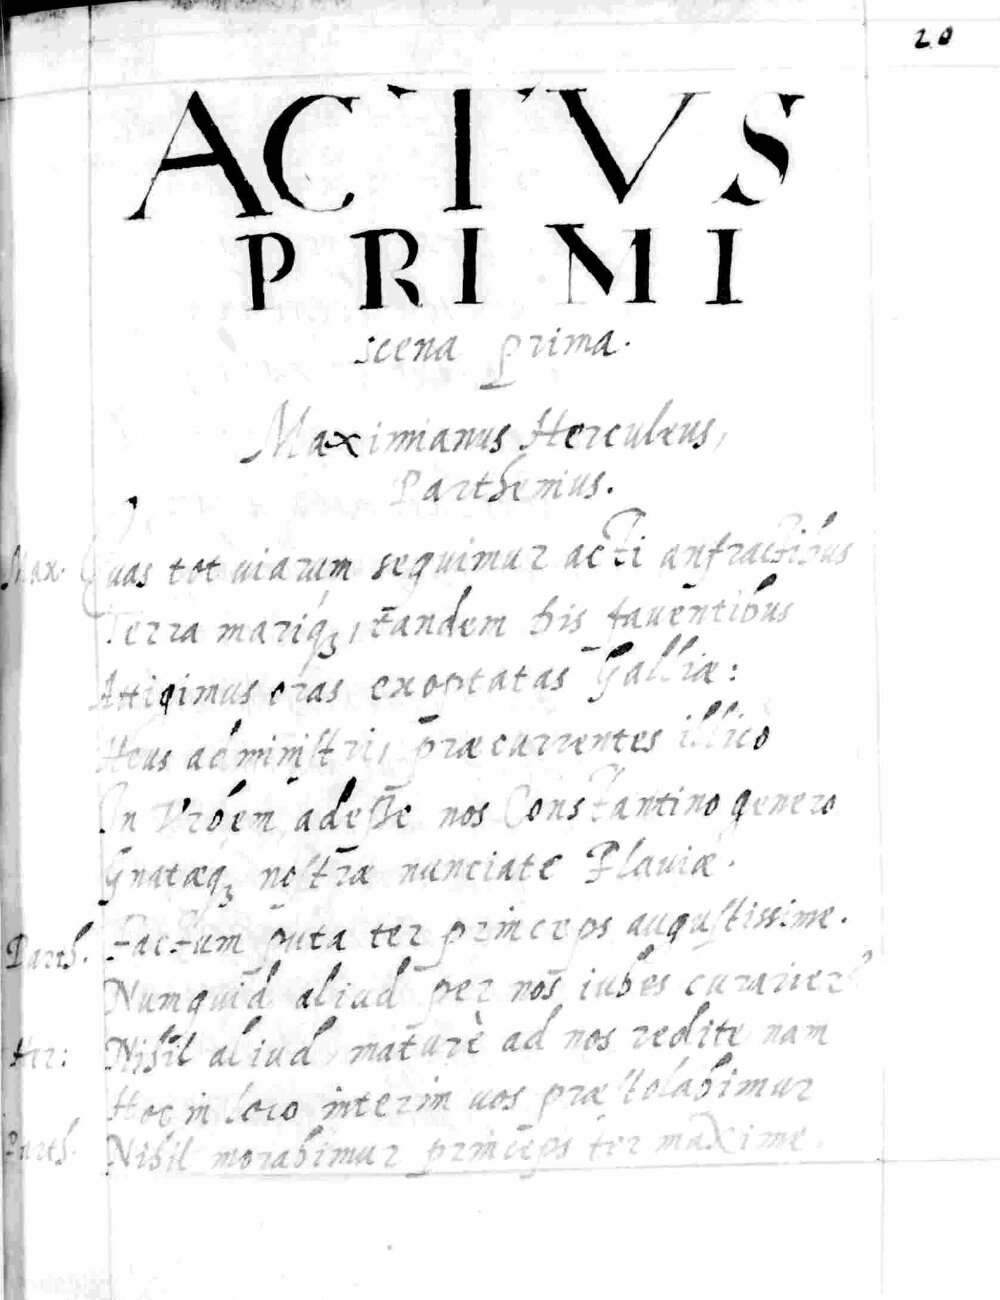 20
ACTVS
PRIMI
scena prima.
Maximianus Herculeus,
Parthenius.
Max. Quas tot uiarum sequimur acti anfractibus
Terra mariq3, tandem his fauentibus
Attigimus oras exoptatas Galliæ:
Heus administri, præcurrentes illicò
In Vrbem adesse nos Constantino genero
Gnatæq3 nostræ nunciate Flauiæ.
Parth. Factum puta ter princeps augustissime.
Numquid aliud per nos iubes curarier?
Her: Nihil aliud, maturè ad nos redite nam
Hoc in loco interim uos præstolabimur
Parth. Nihil morabimur princeps ter maxime.